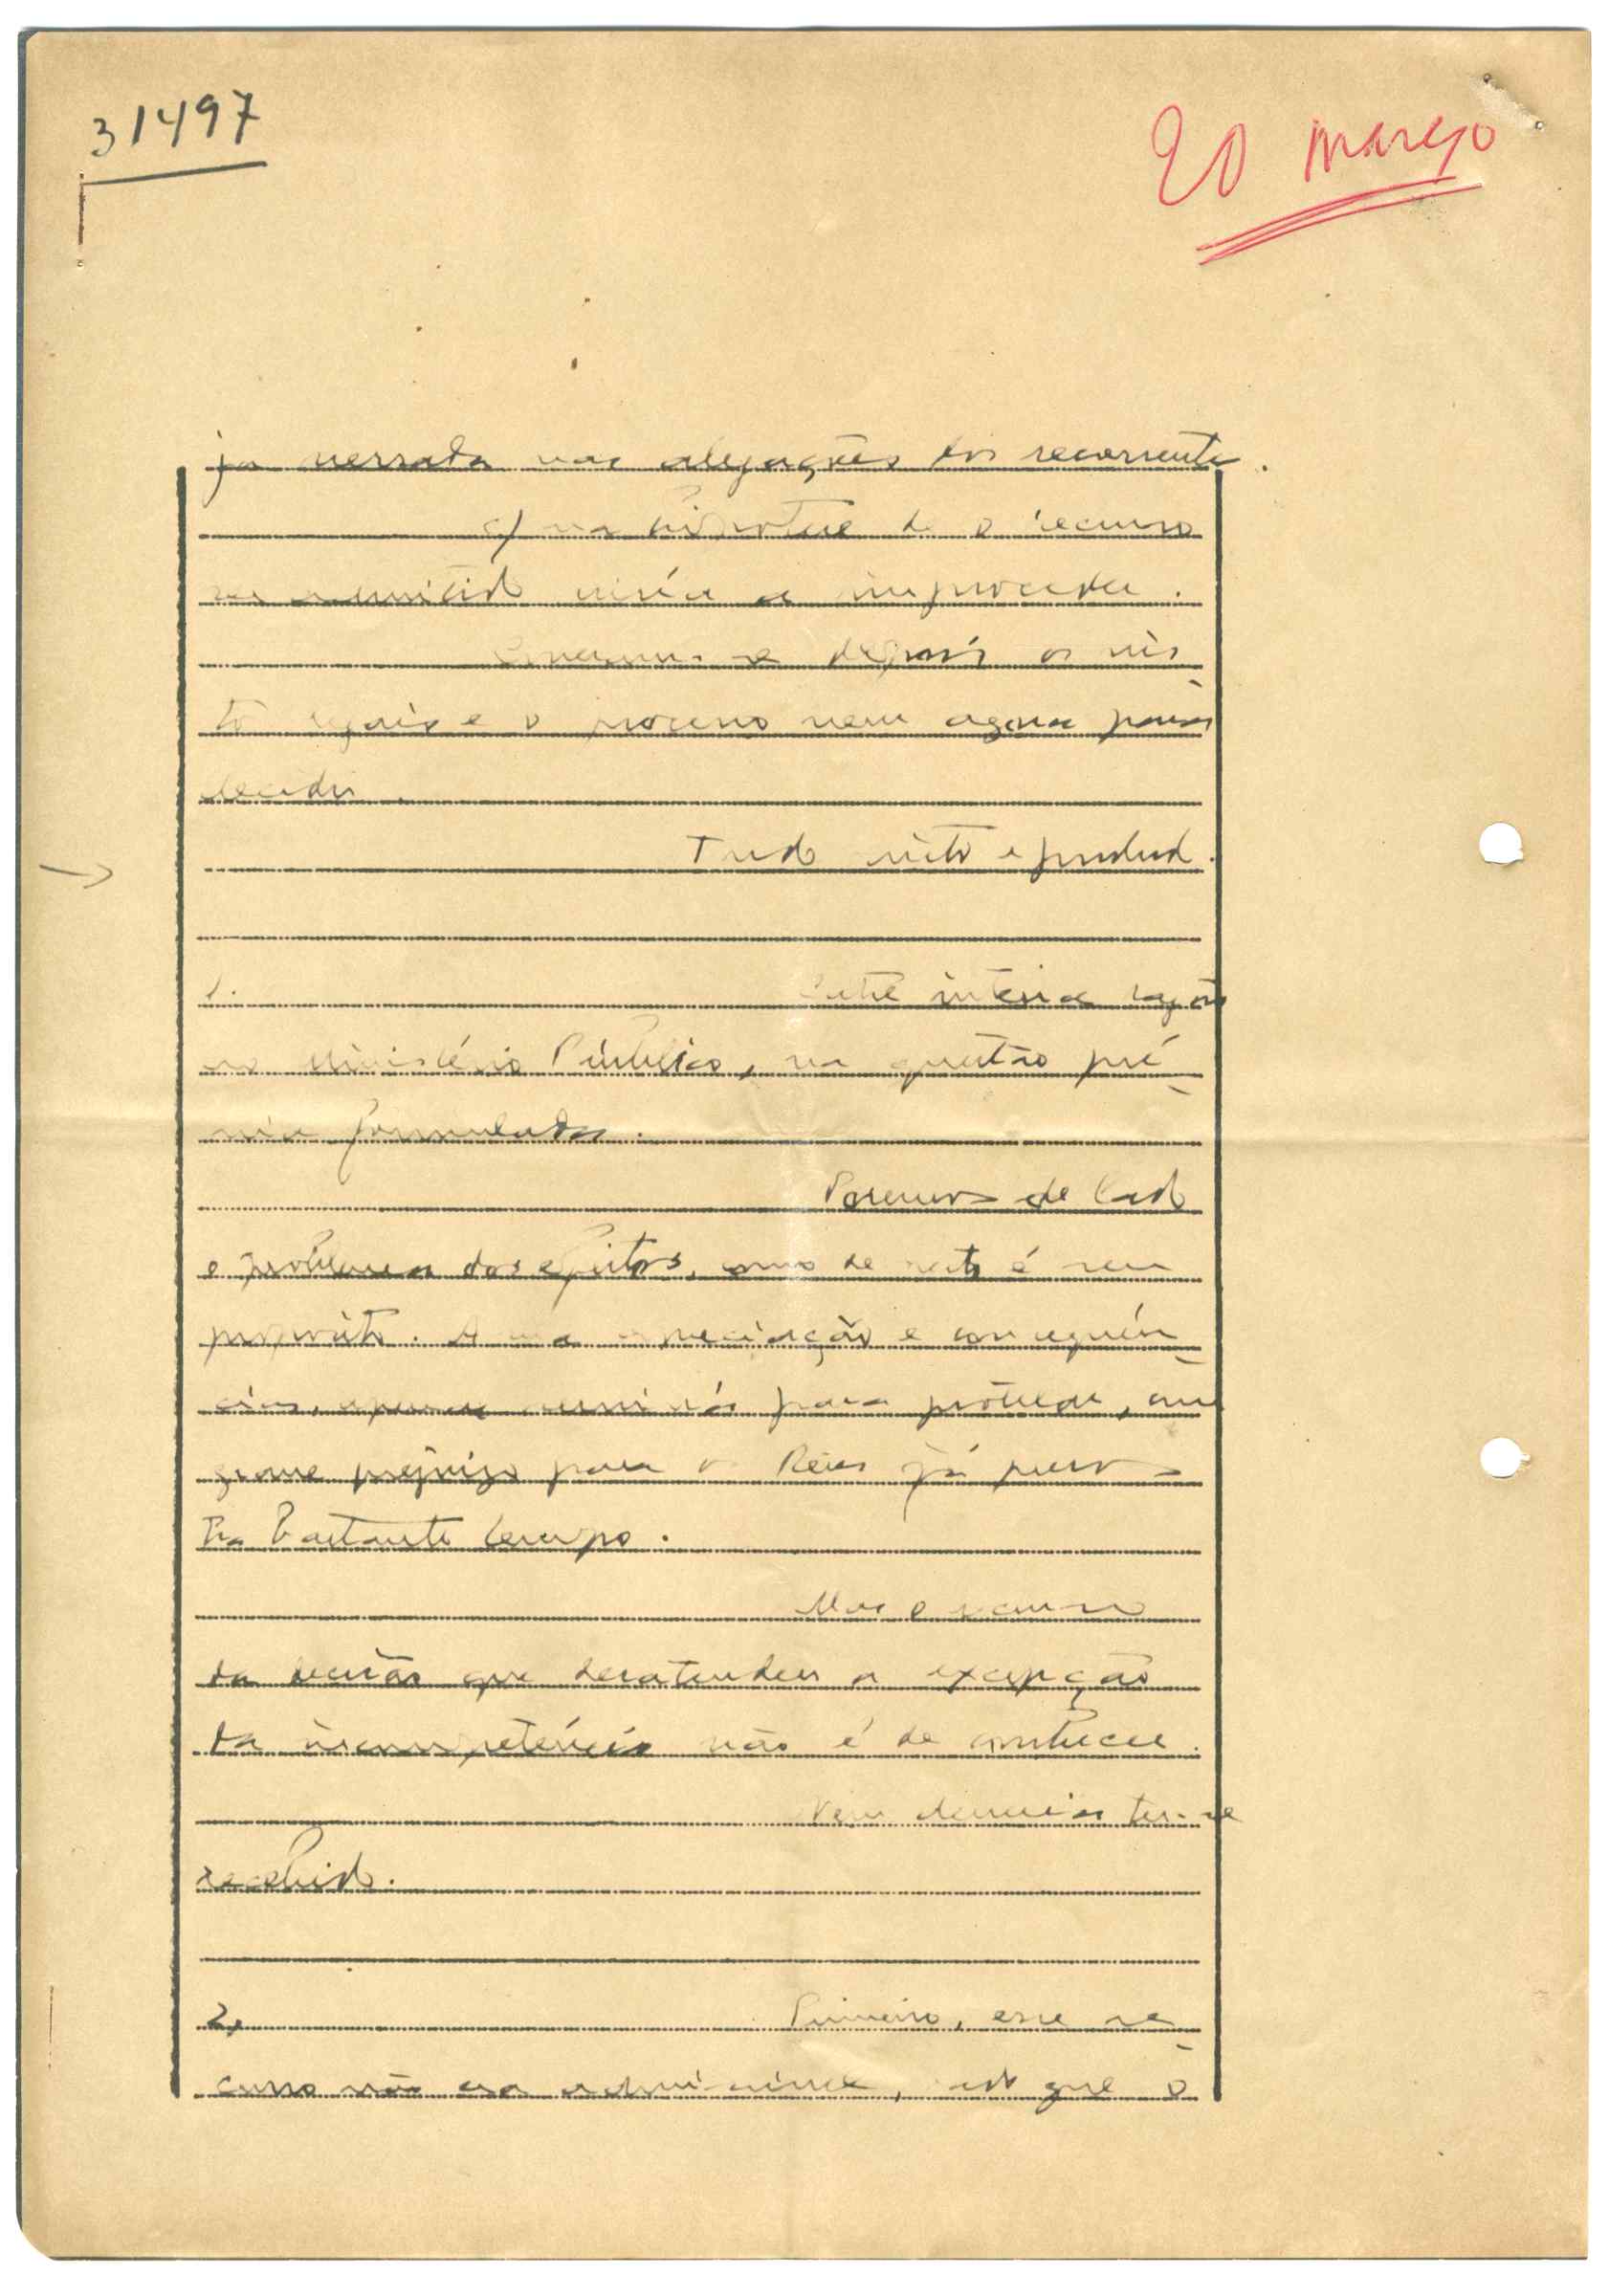 31497
20 março
já versada nas alegações dos recorrente.
c) na hipótese de o recurso
ser admitido viria a improceder.
depois os vis
tos legais e o processo vem agora para
decidir.
Tudo visto e ponderado.
1. Existe inteira razão
no Ministério Público, na questão pré
via formulada.
Poremos de lado
o problema dos efeitos, como de resto é seu
propósito. A sua apreciação e consequên
cias, apenas para protelar, com
grave prejuízo para os Réus já presos
há bastante tempo.
Mas o recurso
da decisão que desatendeu a excepção
da incompetência não é de conhecer.
Nem deveria ter-se
recebido.
2, Primeiro, esse re
curso não era admissível, que o